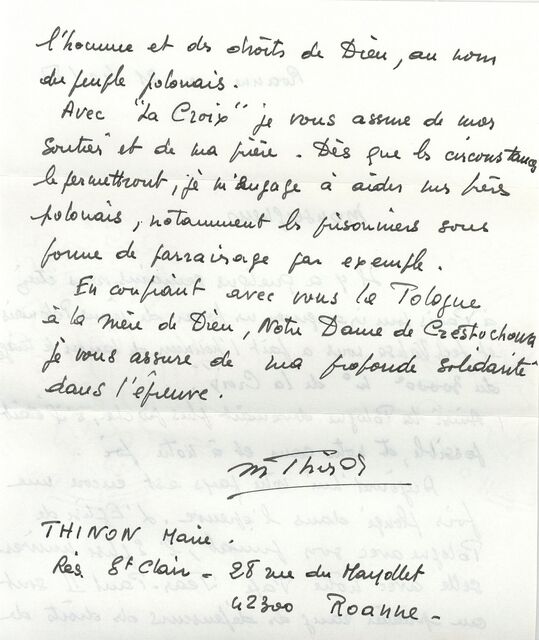 l'homme et des droits de Dieu, au nom
du peuple polonais.
Avec "La Croix" je vous assure de mon
soutien et de ma prière. Dès que les circonstances
le permettront, je m'engage à aider nos frères
polonais, notamment les prisonniers sous
forme de parrainage par exemple.
En confiant avec vous la Pologne
à la mère de Dieu, Notre Dame de Czestochowa
je vous assure de ma profonde solidarité
dans l'épreuve.
M Thinon
THINON Marie.
Rés. St Clair - 28 rue du Mayollet
42300 Roanne -